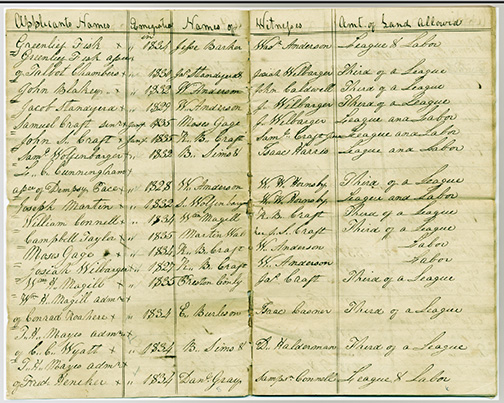 Applicants Names Emigrated in Names of Witnesses Amt. of Land Allowed
Greenleif Fisk x " 1834 Jesse Barker Wm Anderson League & Labor
Greenleif Fisk
of Talbot Chambers x " 1830 Josiah Wilbarger Third of a League
John Blakey x " 1832 W. Anderson John Caldwell Third of a League
Jacob Standyera x " 1829 W. Anderson J. Wilbarger Third of a League
Samuel Craft 1835 Moses Gage J. Wilbarger League and Labor
John S. Craft x 1835 R. B. Craft Saml Craft League and Labor
Saml Wolfenbarger x " 1832 B. Sims & Isaac Harris League and Labor
L. C. Cunningham
of Dempsy Pace x " 1828 W. Anderson W. W. Hornsby Third of a League
Joseph Martin x " 1832 W. W. Hornsby League and Labor
William Connell x " 1834 Wm Magill R. B. Craft Third of a League
Campbell Taylor x " 1835 Martin J. S. Craft Third of a League
Moses Gage x " 1834 R. B. Craft W. Anderson Labor
Josiah Wilbarger " 1827 R. B. Craft W. Anderson Labor
Wm H. Magill x " 1835 Preston Jas Craft Third of a League
Wm H. Magill admr
of Conrad x " 1834 E. Burleson Isaac Casner Third of a League
T. H. Mayes admr
of C. C. Wyatt x " 1834 B. Sims & D. Halderman Third of a League
T. H. Mayes admr
of Fred Heneker x " 1834 Danl Gray Sampson Connell League & Labor